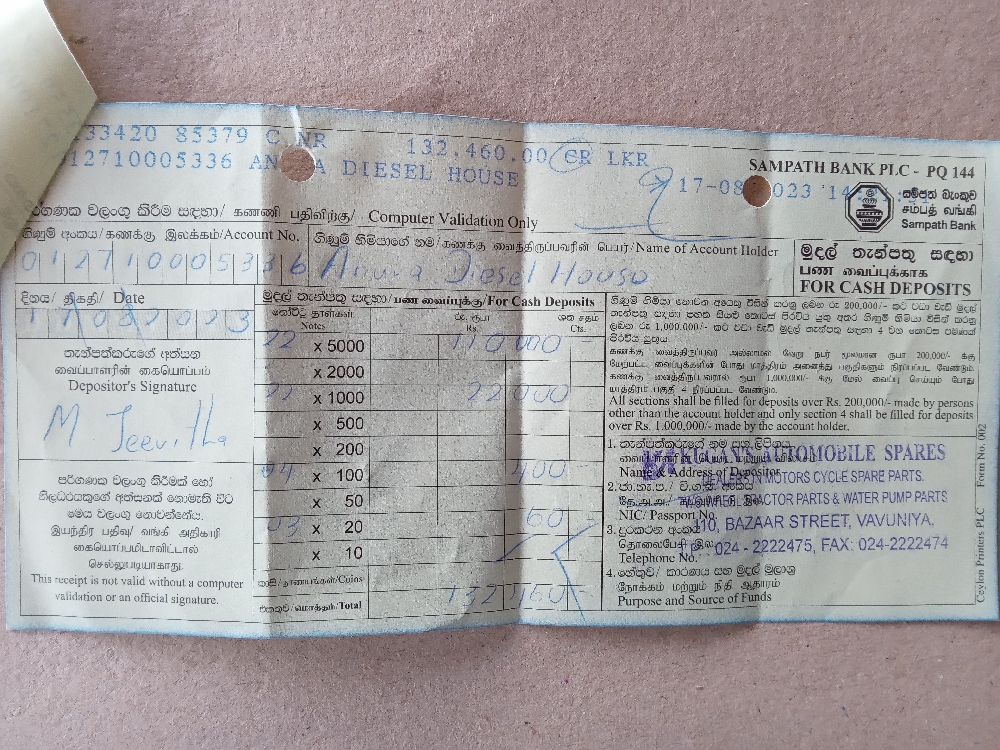 33420 85379 C NR 132,460.00 CR LKR
012710005336 AN A DIESEL HOUSE
17-08 023 14
SAMPATH BANK PLC - PQ 144
සම්පත් බැංකුව
சம்பத் வங்கி
Sampath Bank
පරිගණක වලංගු කිරීම සඳහා/ கணணி பதிவிற்கு/ Computer Validation Only
ගිණුම් අංකය/கணக்கு இலக்கம்/Account No.
ගිණුම් හිමියාගේ නම/கணக்கு வைத்திருப்பவரின் பெயர்/Name of Account Holder
012710005336 Anura Diesel House
මුදල් තැන්පතු සඳහා
பண வைப்புக்காக
FOR CASH DEPOSITS
දිනය/ திகதி/ Date
17082023
මුදල් තැන්පතු සඳහා/பண வைப்புக்கு/For Cash Deposits
නෝට්ටු தாள்கள் Notes
රු. ரூபா Rs.
ශත சதம் Cts.
22 x 5000 110000
x 2000
22 x 1000 22000
x 500
x 200
04 x 100 400
x 50
03 x 20 60
x 10
කාසි/நாணயங்கள்/Coins
එකතුව/மொத்தம்/Total 132460
තැන්පත්කරුගේ අත්සන
வைப்பாளரின் கையொப்பம்
Depositor's Signature
M Jeevitha
පරිගණක වලංගු කිරීමක් හෝ
නිලධරයකුගේ අත්සනක් නොමැති විට
මෙය වලංගු නොවන්නේය.
இயந்திர பதிவு/ வங்கி அதிகாரி
கையொப்பமிடாவிட்டால்
செல்லுபடியாகாது.
This receipt is not valid without a computer
validation or an official signature.
கணக்கு வைத்திருப்பவர் அல்லாமல் வேறு நபர் மூலமான ரூபா 200,000/- க்கு
மேற்பட்ட வைப்புக்களின் போது மாத்திரம் அனைத்து பகுதிகளும் நிரப்பப்பட வேண்டும்.
கணக்கு வைத்திருப்பவரால் ரூபா 1,000,000/- க்கு மேல் வைப்பு செய்யும் போது
மாத்திரம் பகுதி 4 நிரப்பப்பட வேண்டும்.
All sections shall be filled for deposits over Rs. 200,000/- made by persons
other than the account holder and only section 4 shall be filled for deposits
over Rs. 1,000,000/- made by the account holder.
1. තැන්පත්කරුගේ නම සහ ලිපිනය
Name & Address of Depositor
2. ජා.හැ.ප./
NIC/ Passport No.
3. දුරකථන අංකය
தொலைபேசி இல.
Telephone No.
4. හේතුව/ කාරණය සහ මුදල් මූලාශ්‍ර
நோக்கம் மற்றும் நிதி ஆதாரம்
Purpose and Source of Funds
KUGAN'S AUTOMOBILE SPARES
DEALERS IN MOTORS CYCLE SPARE PARTS.
TRACTOR PARTS & WATER PUMP PARTS
110, BAZAAR STREET, VAVUNIYA.
024 - 2222475, FAX: 024-2222474
Ceylon Printers PLC Form No. 002